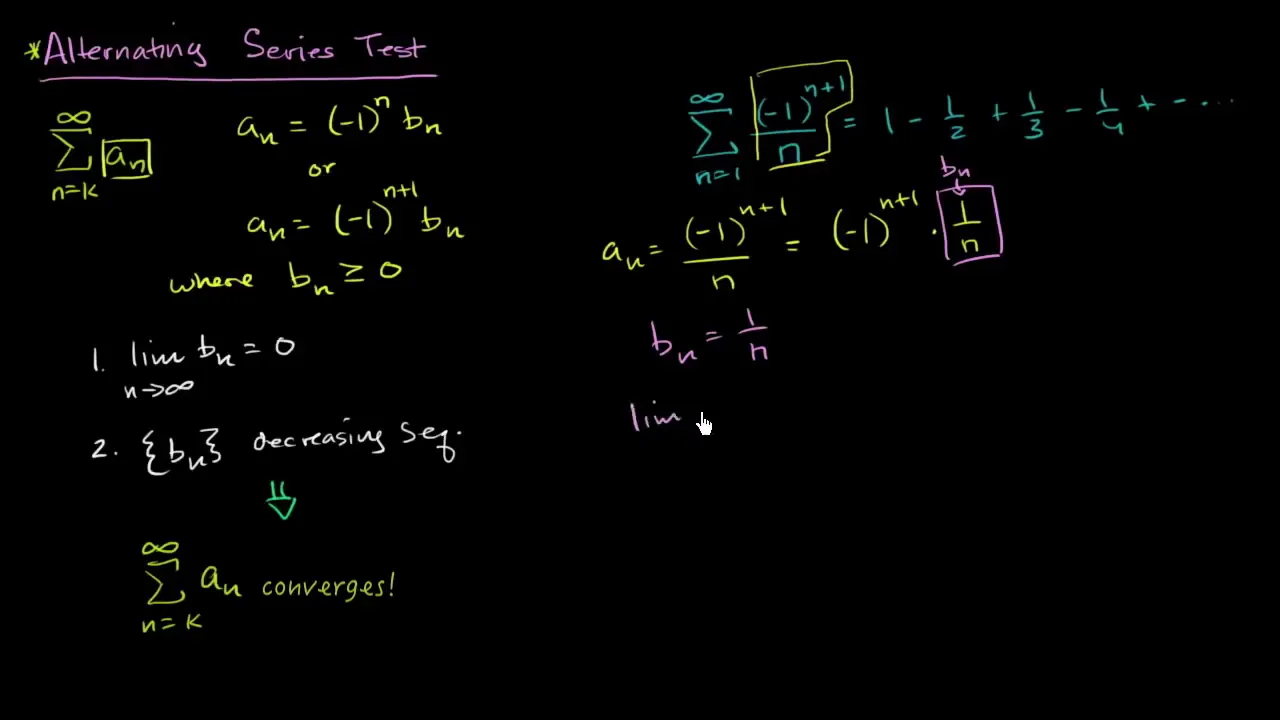 *Alternating Series Test
∞
∑ aₙ
n=k
aₙ = (-1)ⁿ bₙ
or
aₙ = (-1)ⁿ⁺¹ bₙ
where bₙ ≥ 0
1. lim bₙ = 0
n→∞
2. {bₙ} decreasing seq.
⇓
∞
∑ aₙ converges!
n=k
∞
∑ (-1)ⁿ⁺¹/n = 1 - 1/2 + 1/3 - 1/4 + - ....
n=1
bₙ
aₙ = (-1)ⁿ⁺¹/n = (-1)ⁿ⁺¹ · 1/n
bₙ = 1/n
lim